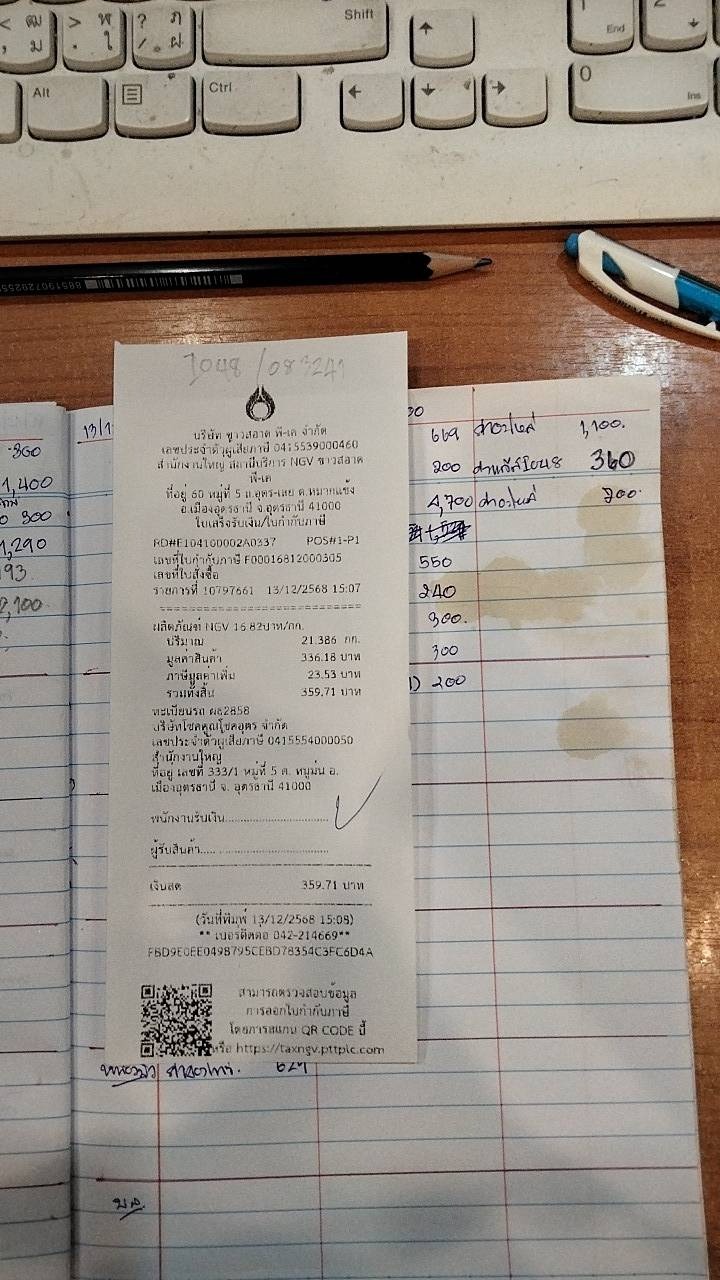 Shift
End
Alt
Ctrl
0
Ins
I048/083241
บริษัท ขาวสอาด พี-เค จำกัด
เลขประจำตัวผู้เสียภาษี 0415539000460
สำนักงานใหญ่ สถานีบริการ NGV ขาวสอาด
พี-เค
ที่อยู่ 60 หมู่ที่ 5 ถ.อุดร-เลย ต.หมากแข้ง
อ.เมืองอุดรธานี จ.อุดรธานี 41000
ใบเสร็จรับเงิน/ใบกำกับภาษี
RD#E104100002A0337 POS#1-P1
เลขที่ใบกำกับภาษี F00016812000305
เลขที่ใบสั่งซื้อ
รายการที่ 10797661 13/12/2568 15:07
ผลิตภัณฑ์ NGV 16.82บาท/กก.
ปริมาณ 21.386 กก.
มูลค่าสินค้า 336.18 บาท
ภาษีมูลค่าเพิ่ม 23.53 บาท
รวมทั้งสิ้น 359.71 บาท
ทะเบียนรถ ผธ2858
บริษัทโชคคูณโชคอุดร จำกัด
เลขประจำตัวผู้เสียภาษี 0415554000050
สำนักงานใหญ่
ที่อยู่ เลขที่ 333/1 หมู่ที่ 5 ต. หมูม่น อ.
เมืองอุดรธานี จ. อุดรธานี 41000
พนักงานรับเงิน
ผู้รับสินค้า
เงินสด 359.71 บาท
(วันที่พิมพ์ 13/12/2568 15:08)
** เบอร์ติดต่อ 042-214669**
FBD9E0EE0498795CEBD78354C3FC6D4A
สามารถตรวจสอบข้อมูล
การออกใบกำกับภาษี
โดยการสแกน QR CODE นี้
หรือ https://taxngv.pttplc.com
669 1,100.
200 ค่าแก๊สI048 360
4,700 200.
550
240
300.
300
200
360
1,400
300
1,290
193
2,100
13/1
629